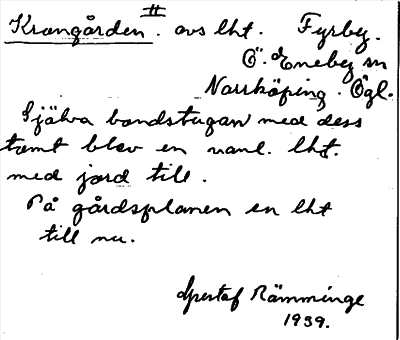 II
Krongården. avs lht. Fyrby.
Ö. Eneby sn
Norrköping. Ögl.
Själva bondstugan med dess
tomt blev en vanl. lht.
med jord till.
På gårdsplanen en lht
till nu.
Rämminge
1939.